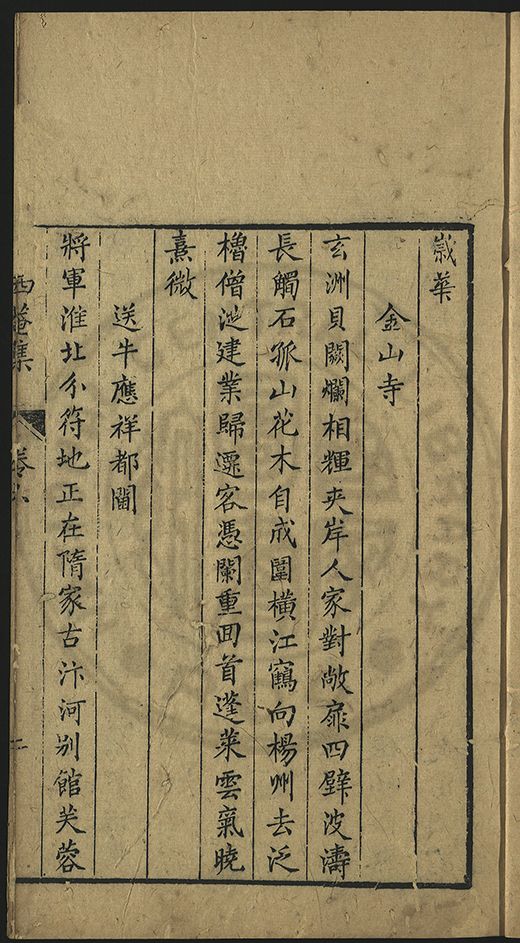 歲華
金山寺
玄洲貝闕爛相輝夾岸人家對敞扉四壁波濤
長觸石孤山花木自成圍橫江鶴向楊州去泛
櫓僧從建業歸遷客憑闌重囬首蓬萊雲氣曉
熹微
送牛應祥都閫
將軍淮北分符地正在隋家古汴河別館芙蓉
西菴集
卷